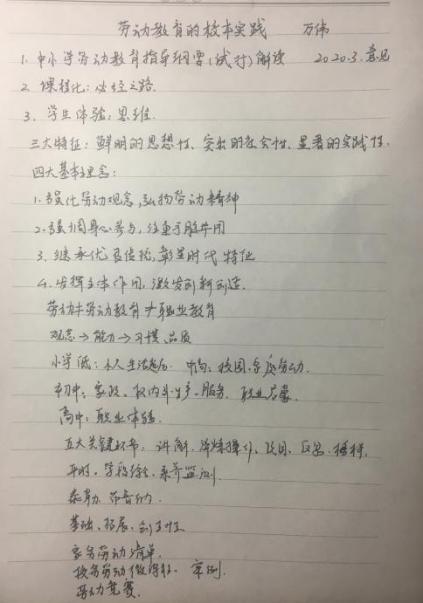 劳动教育的校本实践 万伟
1. 中小学劳动教育指导纲要(试行)解读 2020.3.意见
2. 课程化:必经之路.
3. 学生体验;思维.
三大特征:鲜明的思想性、突出的社会性、显著的实践性.
四大基本理念:
1. 强化劳动观念,弘扬劳动精神
2. 强调身心参与,注重手脑并用
3. 继承优良传统,彰显时代特征
4. 发挥主体作用,激发创新创造.
劳动≠劳动教育≠职业教育
观念→能力→习惯、品质
小学低:个人生活起居. 中高:校园、家庭劳动.
初中:家政、校内外生产、服务. 职业启蒙.
高中:职业体验.
五大关键环节:讲解、淬炼操作、项目、反思、榜样.
平时、学段综合、素养监测.
基础、拓展、创造性
家务劳动清单.
校务劳动微课程. 案例.
劳动竞赛.